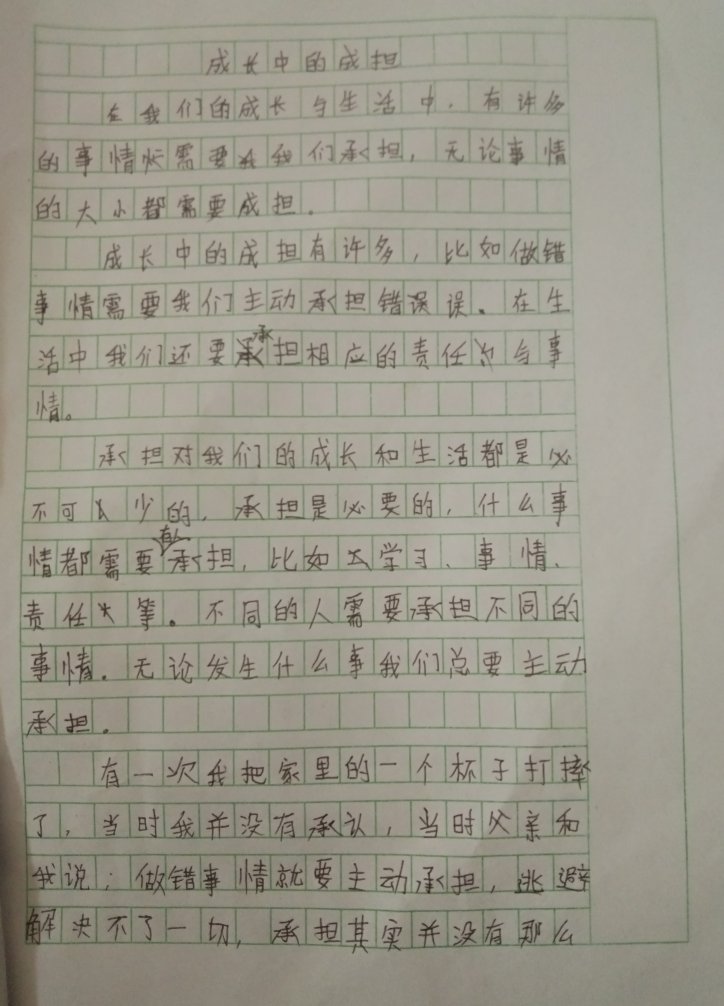 成长中的成担
在我们的成长与生活中，有许多
的事情需要我们承担，无论事情
的大小都需要成担。
成长中的成担有许多，比如做错
事情需要我们主动承担错误误。在生
活中我们还要承担相应的责任与事
情。
承担对我们的成长和生活都是必
不可少的，承担是必要的，什么事
情都需要有人承担，比如学习、事情、
责任等。不同的人需要承担不同的
事情。无论发生什么事我们总要主动
承担。
有一次我把家里的一个杯子打摔
了，当时我并没有承认，当时父亲和
我说：做错事情就要主动承担，逃避
解决不了一切，承担其实并没有那么